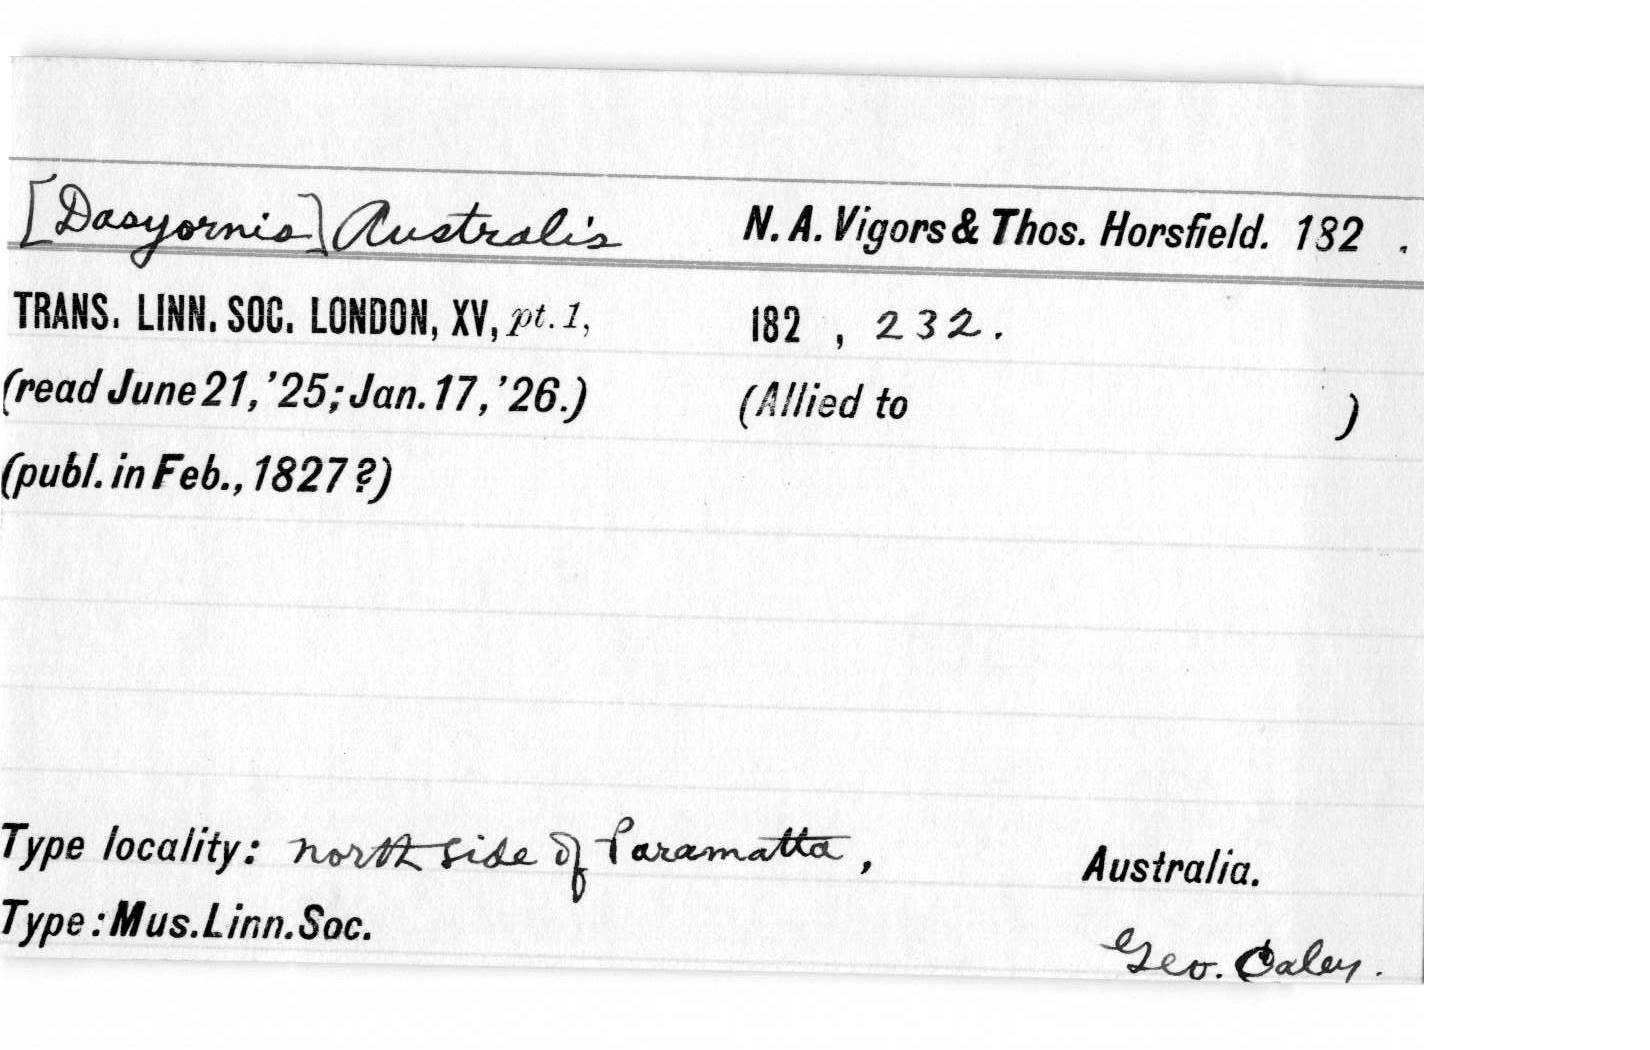 [Dasyornis] Australis N. A. Vigors & Thos. Horsfield. 182 .
TRANS. LINN. SOC. LONDON, XV, pt. 1, 182 , 232.
(read June 21, '25; Jan. 17, '26.) (Allied to )
(publ. in Feb., 1827 ?)
Type locality: north side of Paramatta, Australia.
Type : Mus. Linn. Soc. Geo. Caley.